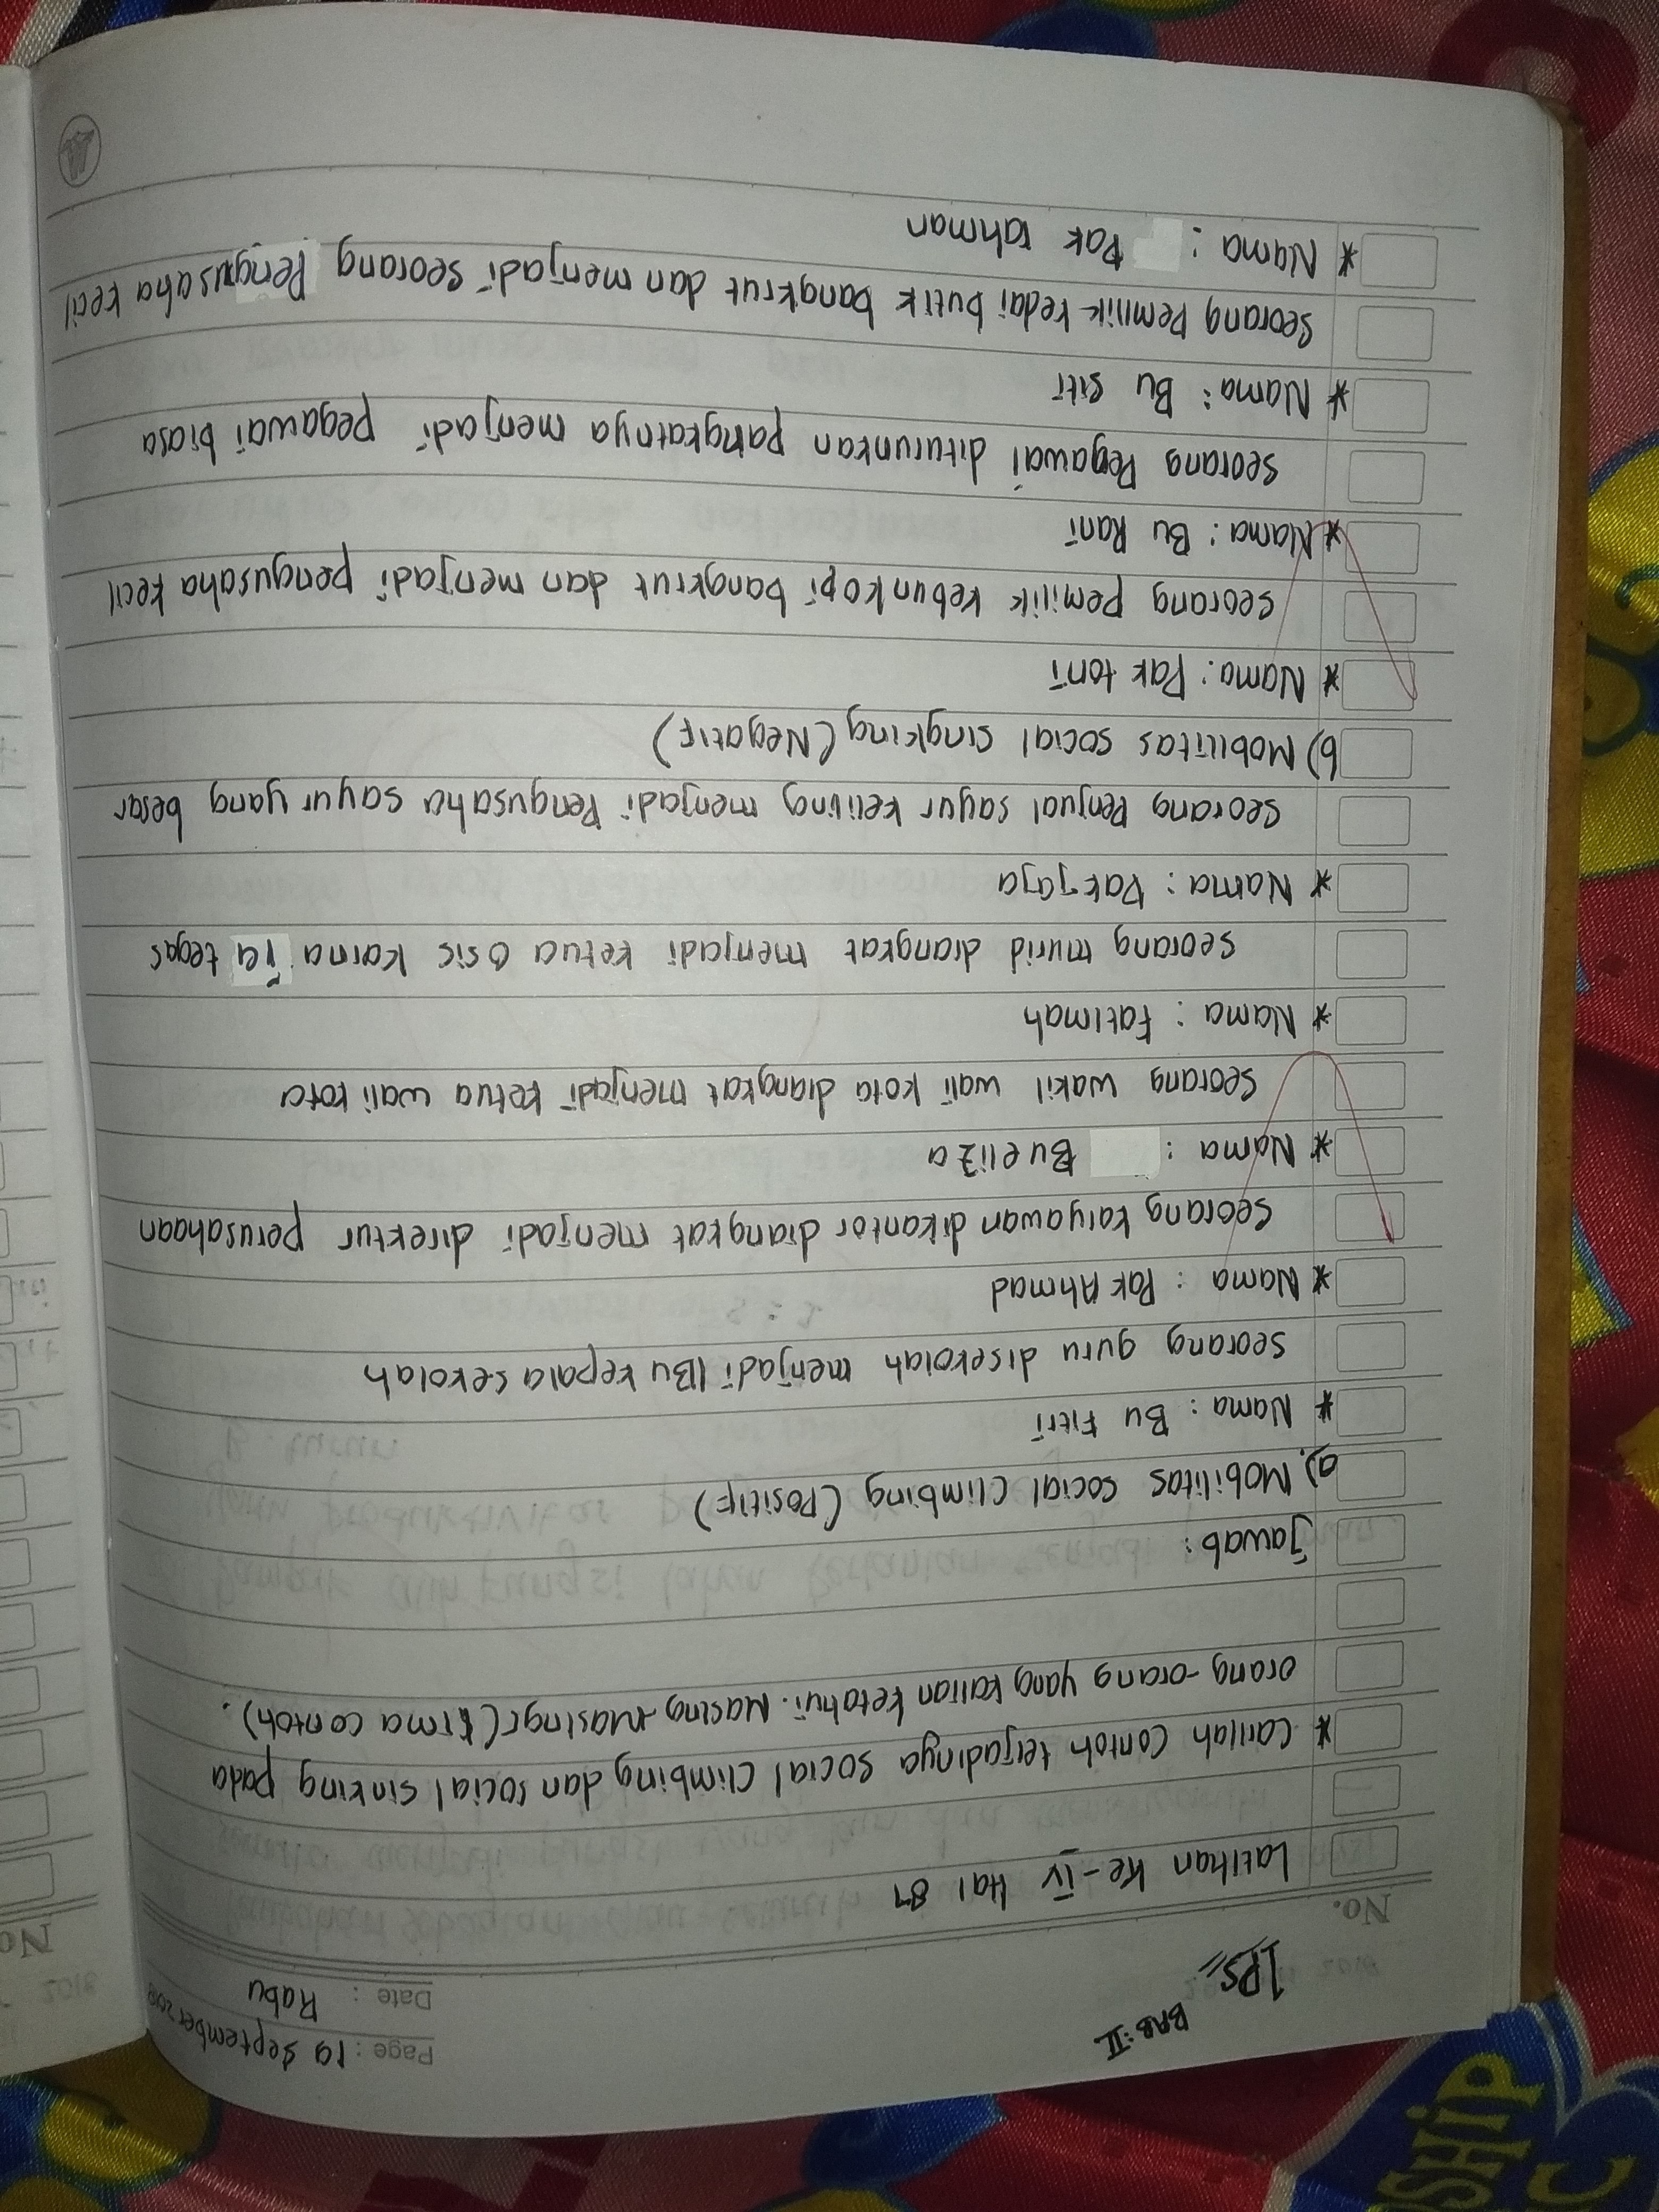 Page : 19 September
Date : Rabu
BAB : II
IPS
No.
Latihan Ke-IV Hal 87
* Carilah Contoh terjadinya social climbing dan social sinking pada
orang-orang yang kalian ketahui. Masing-Masing (Lima contoh).
Jawab :
a). Mobilitas social climbing (Positif)
* Nama : Bu Fitri
Seorang guru disekolah menjadi IBu kepala sekolah
* Nama : Pak Ahmad
Seorang karyawan dikantor diangkat menjadi direktur perusahaan
* Nama : Bu eliza
Seorang wakil wali kota diangkat menjadi ketua wali kota
* Nama : Fatimah
Seorang murid diangkat menjadi ketua osis karna ia tegas
* Nama : Pak jaja
Seorang Penjual sayur keliling menjadi Pengusaha sayur yang besar
b) Mobilitas social singking (Negatif)
* Nama : Pak toni
Seorang Pemilik kebun kopi bangkrut dan menjadi pengusaha kecil
* Nama : Bu Rani
Seorang Pegawai diturunkan pangkatnya menjadi pegawai biasa
* Nama : Bu siti
Seorang Pemilik kedai butik bangkrut dan menjadi seorang Pengusaha kecil
* Nama : Pak rahman